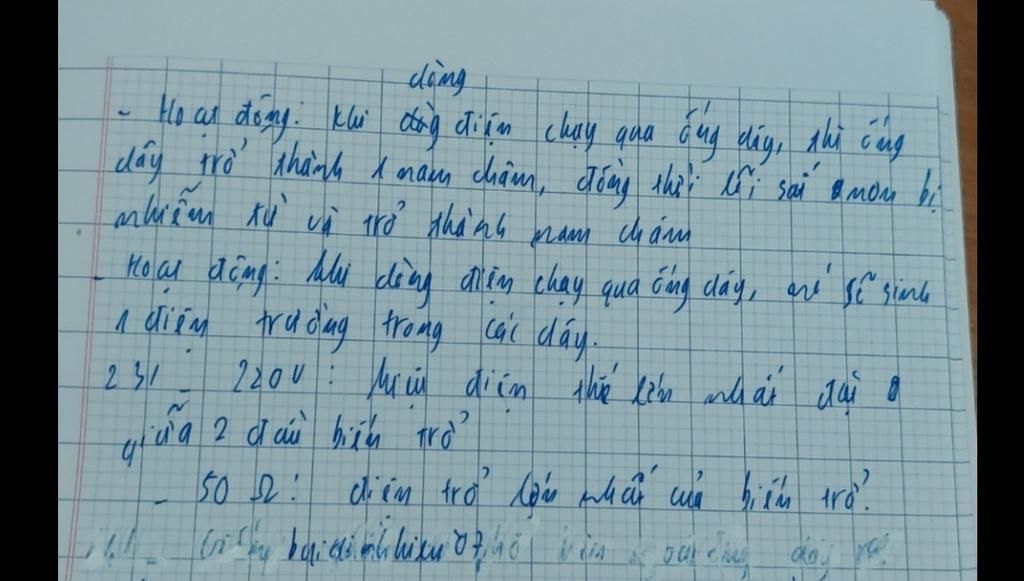 dòng
- Hoạt động: Khi điện chạy qua ống dây, thì ống
dây trở thành 1 nam châm, đồng thời lõi sắt non bị
nhiễm từ và trở thành nam châm
- Hoạt động: khi dòng điện chạy qua ống dây, nó sẽ sinh
1 điện trường trong các dây.
231 - 220V: hiệu điện thế lớn nhất đặt
giữa 2 đầu biến trở
- 50 Ω: điện trở lớn nhất của biến trở.